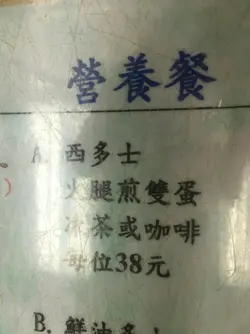 營養餐
A. 西多士
火腿煎雙蛋
冰茶或咖啡
每位38元
B. 鮮油多士